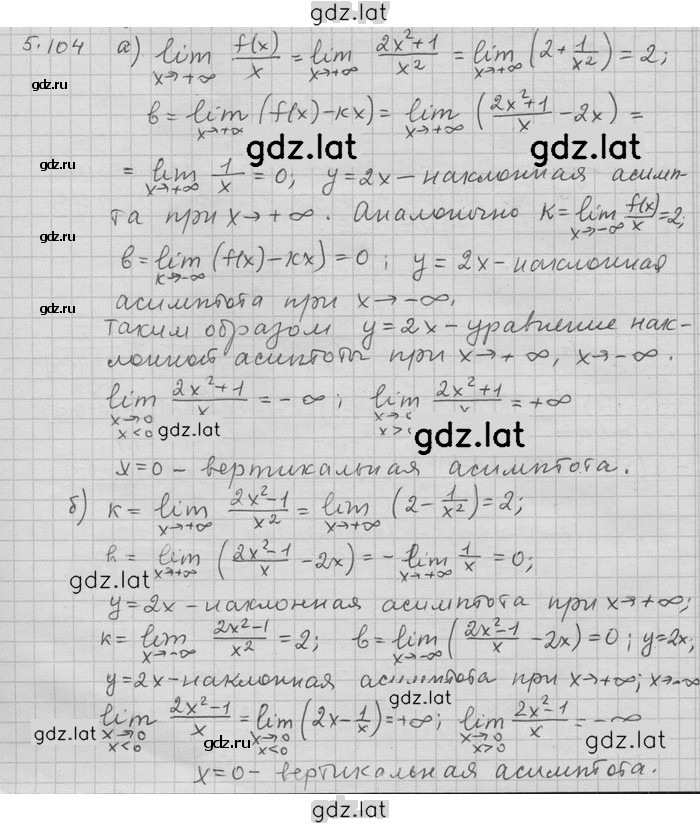 gdz.lat
5.104 а) lim x→+∞ f(x)/x = lim x→+∞ (2x²+1)/x² = lim x→+∞ (2+1/x²) = 2;
gdz.lat
в = lim x→+∞ (f(x)-кx) = lim x→+∞ ((2x²+1)/x - 2x) =
gdz.lat gdz.lat
gdz.lat
= lim x→+∞ 1/x = 0; y=2x – наклонная асимп-
та при x→+∞. Аналогично к = lim x→-∞ f(x)/x = 2;
gdz.lat
в = lim к→-∞ (f(x)-кx) = 0; y = 2x – наклонная
асимптота при x→-∞.
gdz.lat
Таким образом y=2x – уравнение нак-
лонной асиптоты при x→+∞, x→-∞.
lim x→0 x<0 (2x²+1)/x = -∞; lim x→0 x> (2x²+1)/x = +∞
gdz.lat gdz.lat
x=0 – вертикальная асимптота.
б) к = lim x→+∞ (2x²-1)/x² = lim x→+∞ (2-1/x²) = 2;
в = lim x→+∞ ((2x²-1)/x - 2x) = - lim x→+∞ 1/x = 0;
gdz.lat
y=2x – наклонная асимптота при x→+∞;
к = lim x→-∞ (2x²-1)/x² = 2; в = lim x→-∞ ((2x²-1)/x - 2x) = 0; y=2x;
y=2x – наклонная асимптота при x→+∞; x→-∞
gdz.lat
lim x→0 x<0 (2x²-1)/x = lim x→0 x<0 (2x-1/x) = +∞; lim x→0 x>0 (2x²-1)/x = -∞
gdz.lat gdz.lat gdz.lat
x=0 – вертикальная асимптота.
gdz.lat